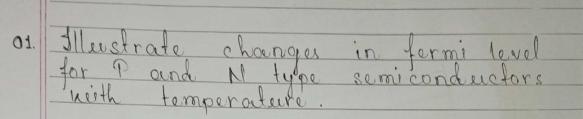 01. Illustrate changes in fermi level
for P and N type semiconductors
with temperature.